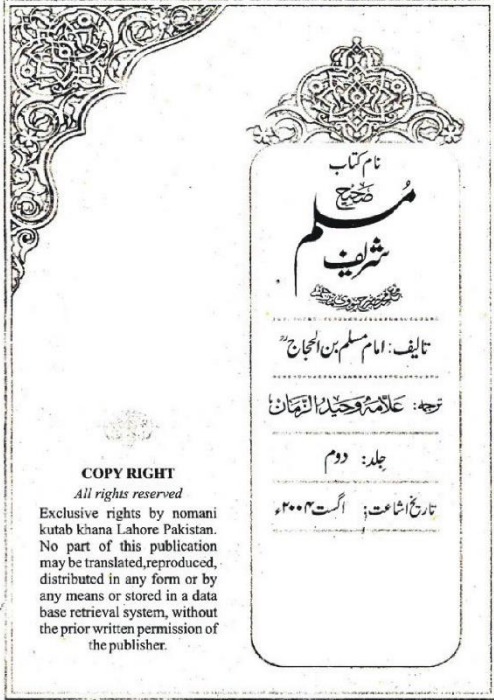 نام کتاب
صحیح
مسلم
شریف
تالیف: امام مسلم بن الحجاجؒ
ترجمہ: علامہ وحید الزمان
جلد: دوم
تاریخ اشاعت: اگست ۲۰۰۴ء
COPY RIGHT
All rights reserved
Exclusive rights by nomani
kutab khana Lahore Pakistan.
No part of this publication
may be translated,reproduced,
distributed in any form or by
any means or stored in a data
base retrieval system, without
the prior written permission of
the publisher.